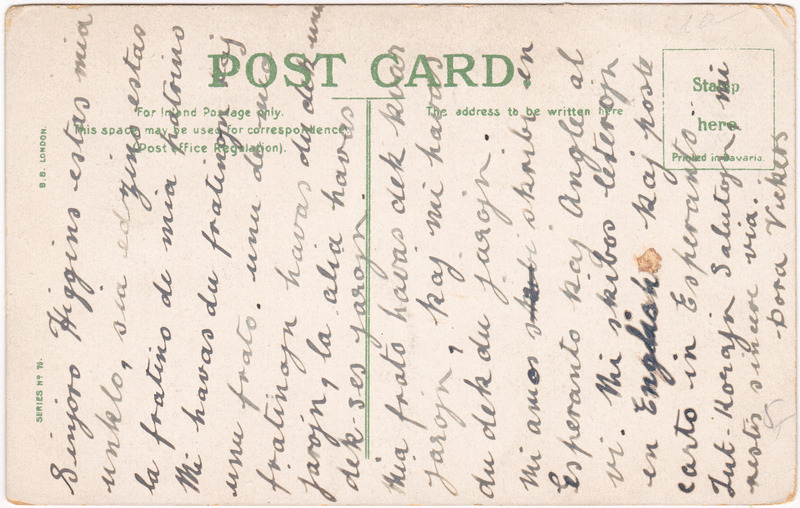 POST CARD.
For Inland Postage only.
This space may be used for correspondence
(Post Office Regulation).
The address to be written here
Stamp
here
Printed in Bavaria.
B.B. LONDON.
SERIES Nº 76.
Sinjoro Higgins estas mia
unklo, sia edzino estas
la fratino de mia patrino
Mi havas du fratinojn kaj
unu frato. unu de mia
fratinojn havas du dek unu
jarojn, la alia havas
dek-ses jarojn.
Mia frato havas dek kvar
jarojn, kaj mi havas
du dek du jarojn.
Mi amos skribi en
Esperanto kaj Angle al
vi. Mi skibos leterojn
en English kaj poste
carto in Esperanto
Tut-Korajn Salutojn, mi
restis sincere via.
Dora Vickers